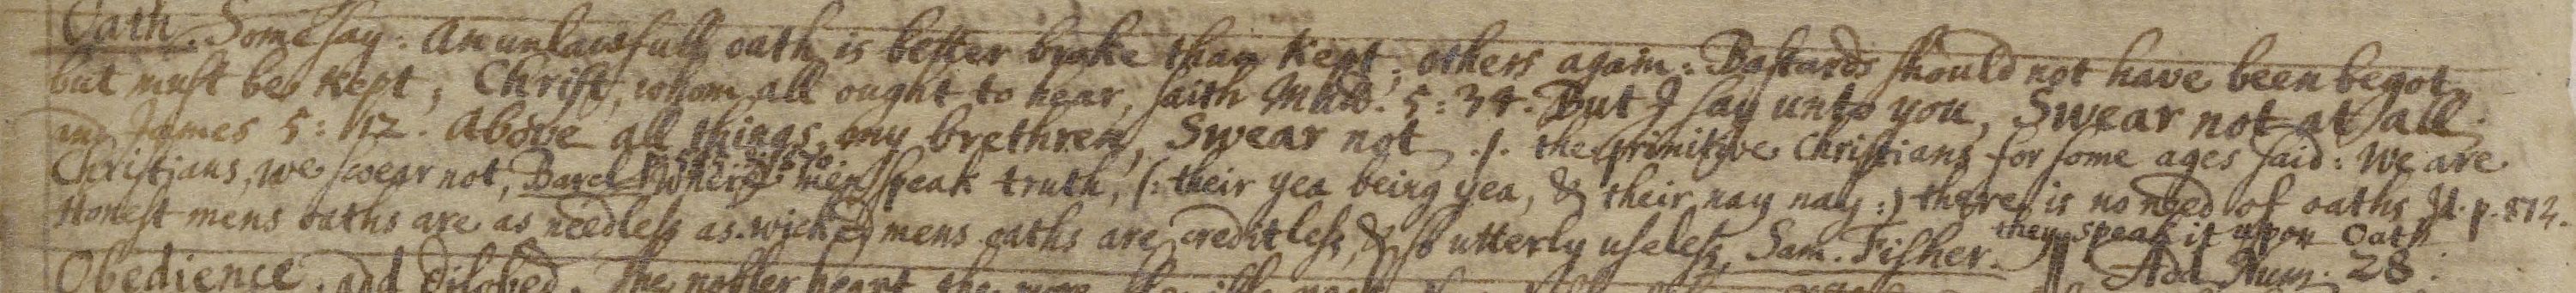 Oath. Some say: An unlawfull oath is better broke than kept; others again: Bastards should not have been begot
but must be kept; Christ, whom all ought to hear, saith Matt. 5:34. But I say unto you, Swear not at all.
and James 5:12. Above all things, my brethren, Swear not ./. the primitive Christians for some ages said: We are
Christians, we swear not, Barcl. Where men speak truth, (: their yea being yea, & their nay nay :) there is no need of oaths Id. p. 813.
Honest mens oaths are as needless as wicked mens oaths are creditless, & so utterly useless, Sam. Fisher.
they speak it upon Oath
Add Num. 28.
Obedience, add disobed. The nobler heart the more